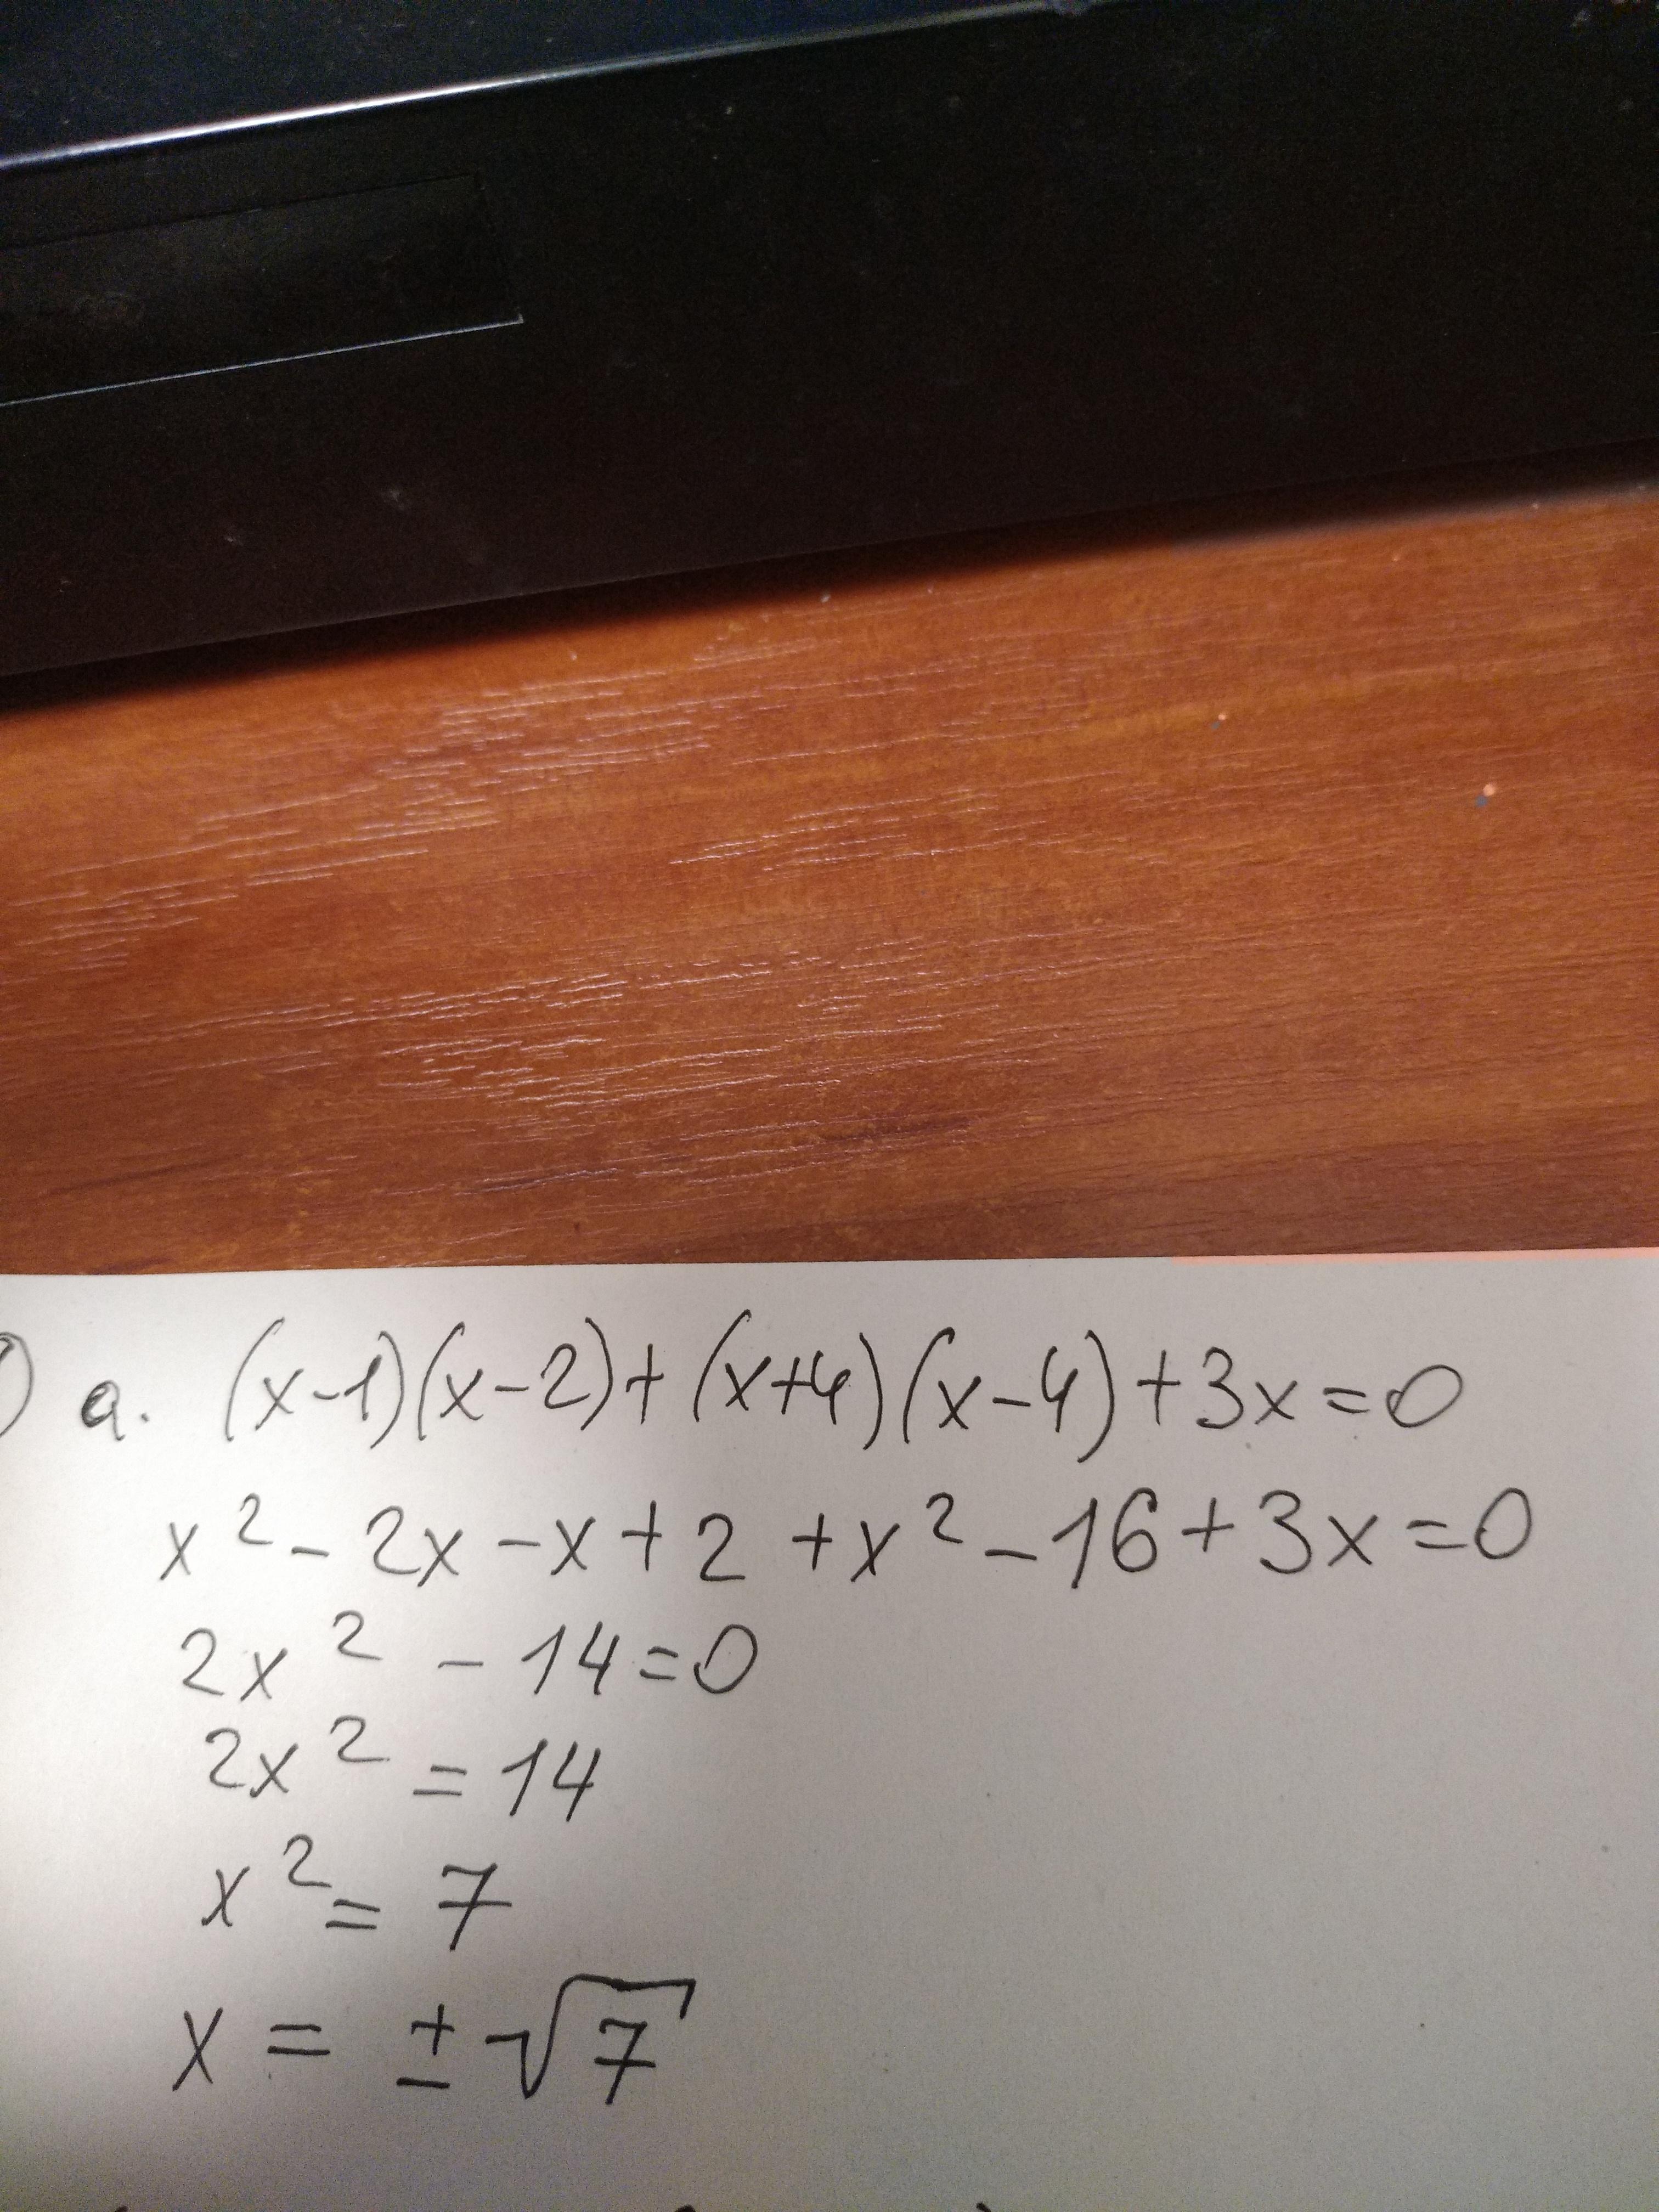 ) a. (x-1)(x-2)+(x+4)(x-4)+3x=0
x² - 2x - x + 2 + x² - 16 + 3x = 0
2x² - 14 = 0
2x² = 14
x² = 7
x = ± √7